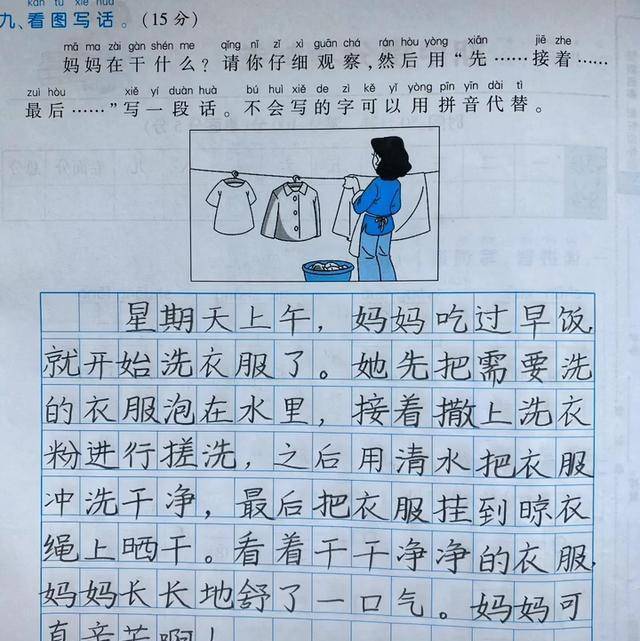 kàn tú xiě huà
九、看图写话。(15 分)
mā ma zài gàn shén me qǐng nǐ zǐ xì guān chá rán hòu yòng xiān jiē zhe
妈妈在干什么？请你仔细观察，然后用“先……接着……
zuì hòu xiě yí duàn huà bú huì xiě de zì kě yǐ yòng pīn yīn dài tì
最后……”写一段话。不会写的字可以用拼音代替。
星期天上午，妈妈吃过早饭，
就开始洗衣服了。她先把需要洗
的衣服泡在水里，接着撒上洗衣
粉进行搓洗，之后用清水把衣服
冲洗干净，最后把衣服挂到晾衣
绳上晒干。看着干干净净的衣服，
妈妈长长地舒了一口气。妈妈可
真辛苦啊！